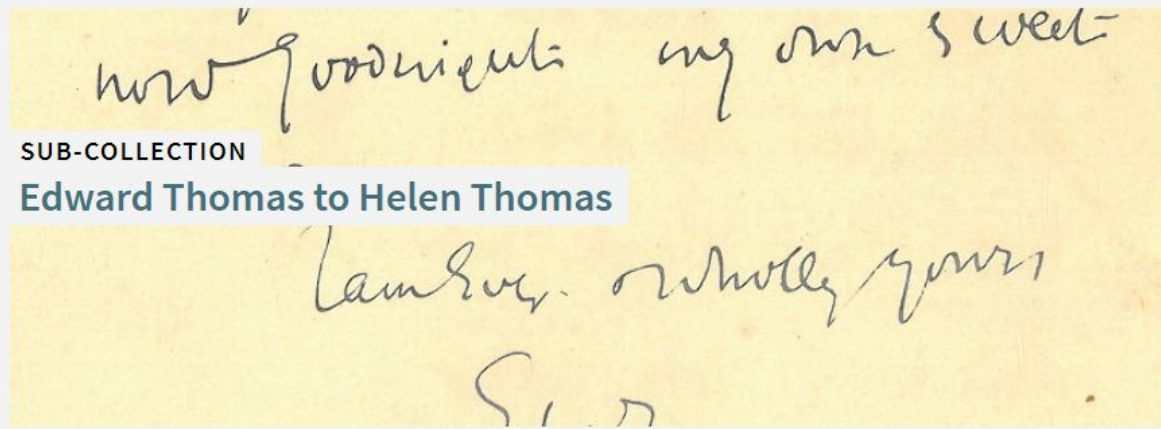 now Goodnight my own sweet
SUB-COLLECTION
Edward Thomas to Helen Thomas
I am Ever & wholly yours